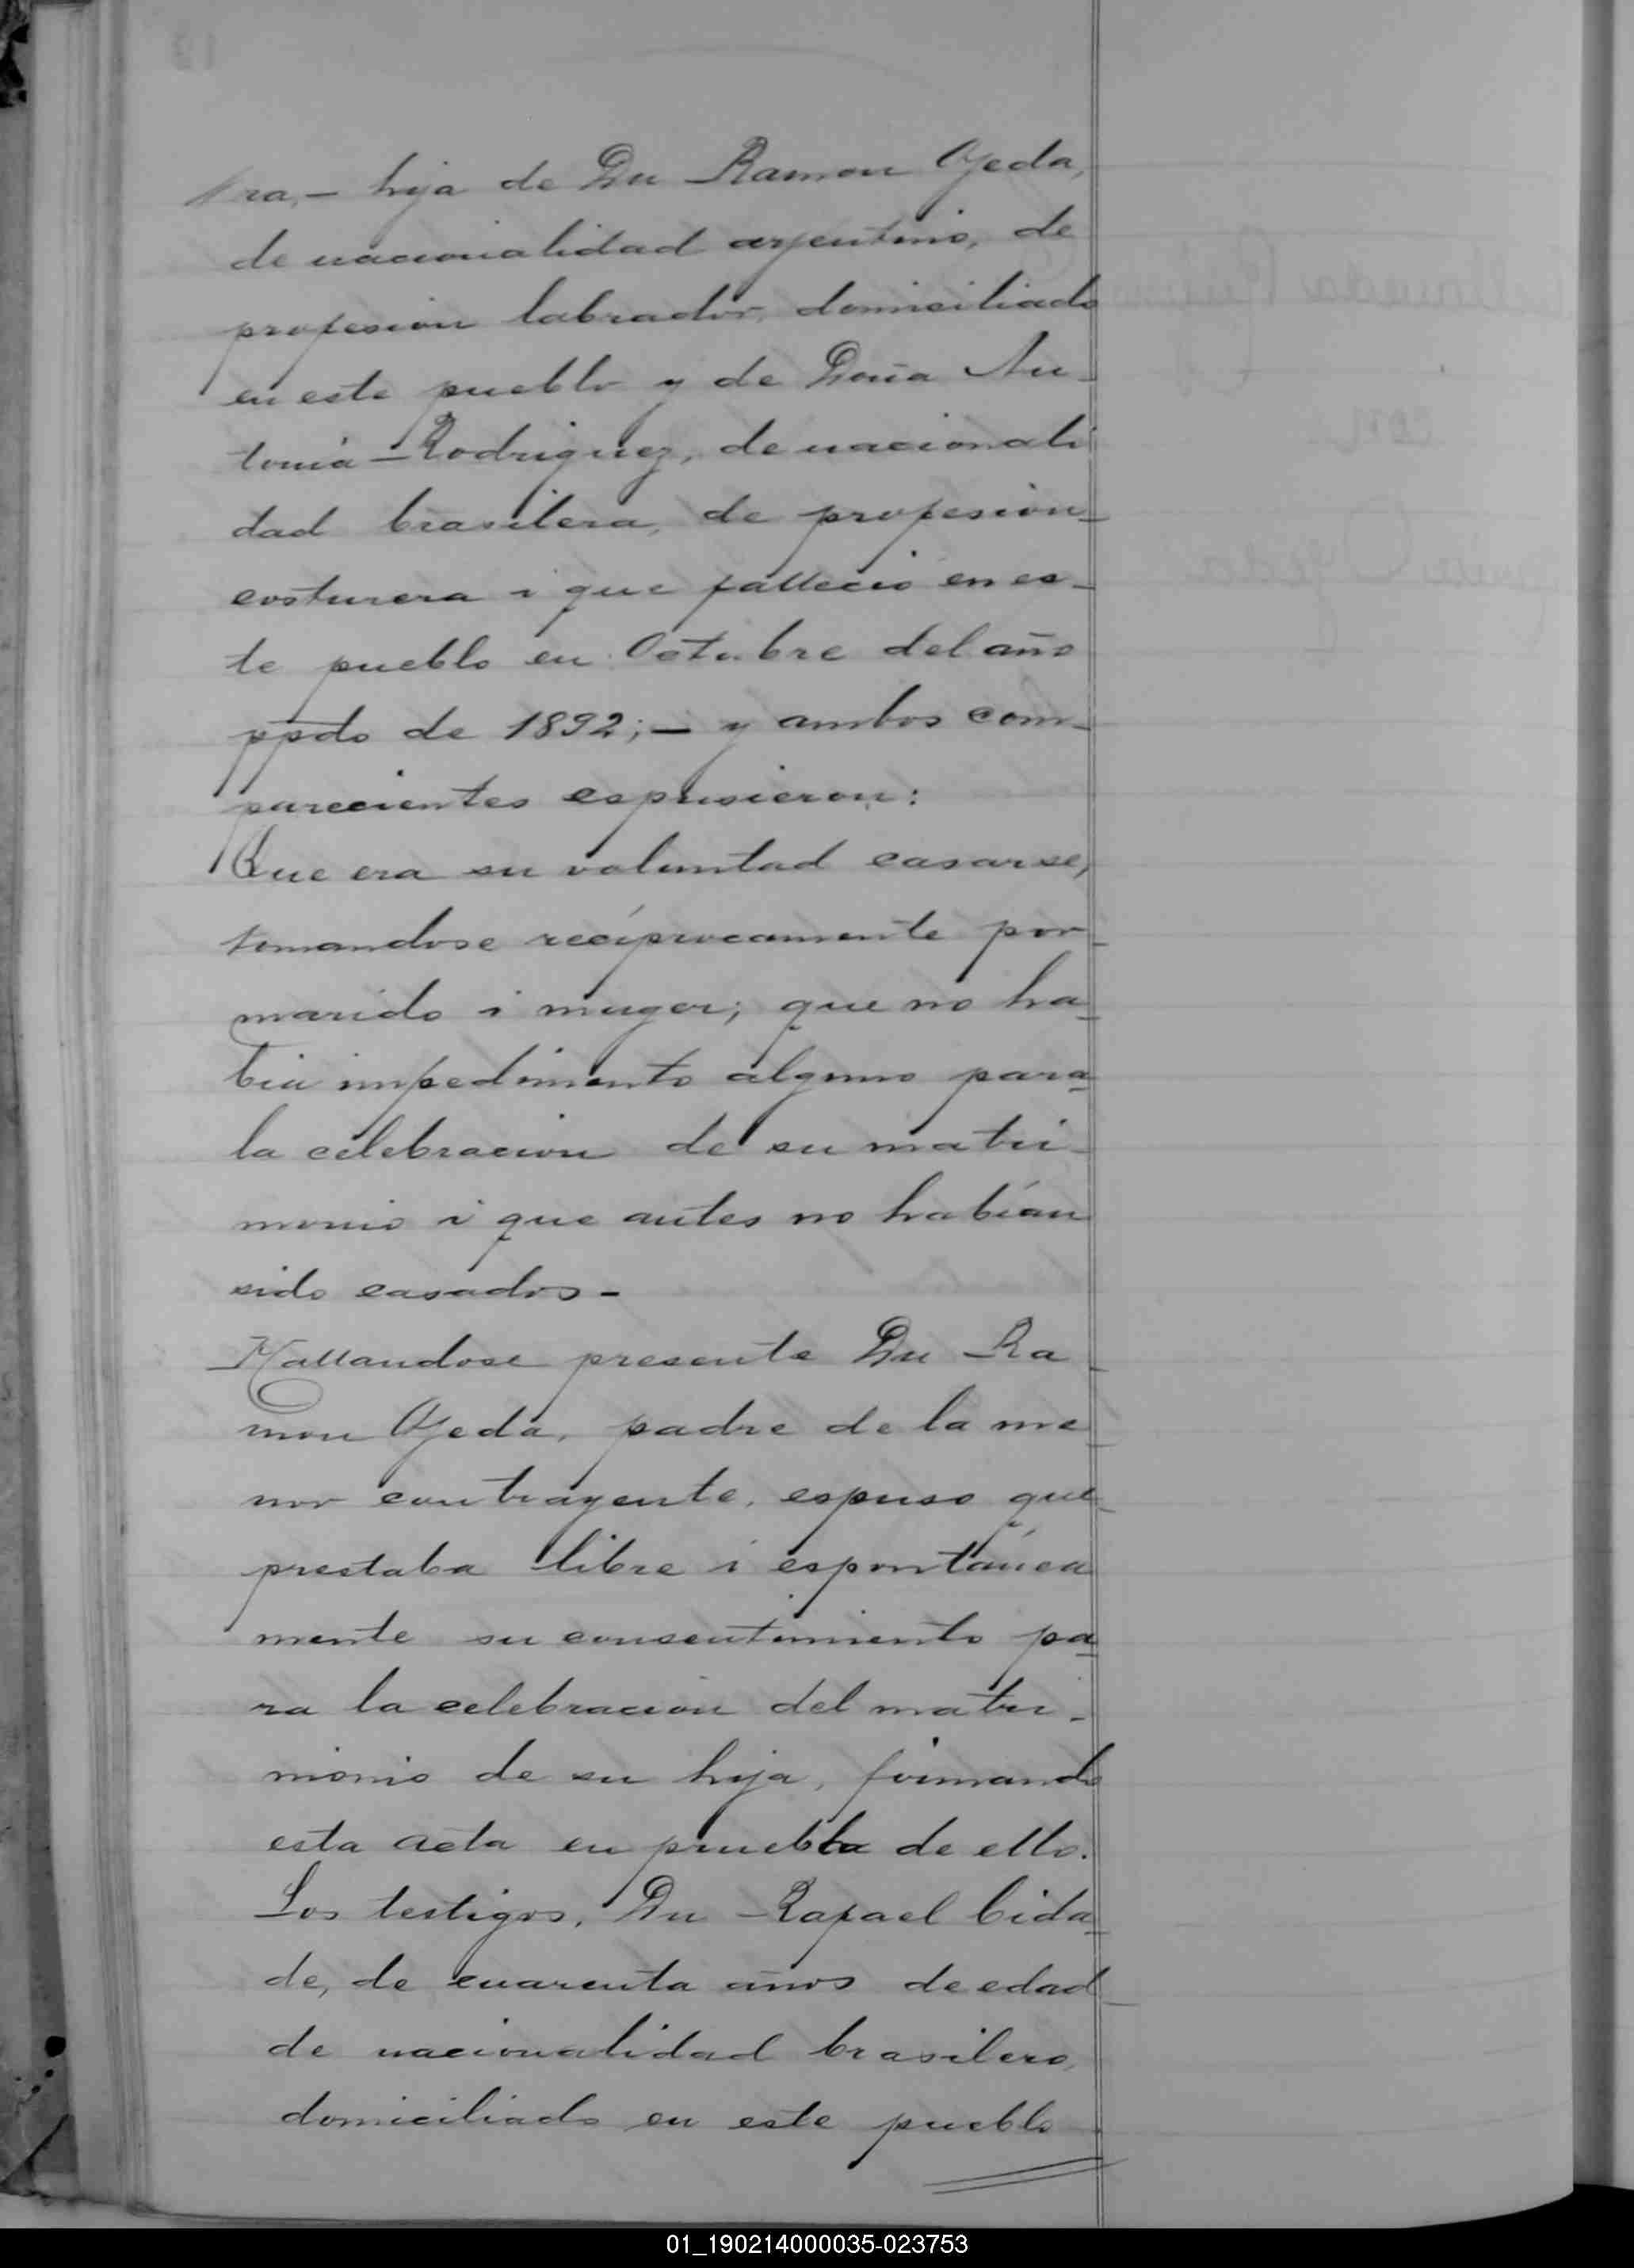 ra,- hija de Dn Ramon Ojeda,
de nacionalidad arjentino, de
profesion labrador, domiciliado
en este pueblo y de Doña An-
tonia Rodriguez, de nacionali
dad brasilera, de profesion
costurera i que fallecio en es-
te pueblo en Octubre del año
ppdo de 1892;- y ambos com-
parecientes espusieron:
Que era su voluntad casarse,
tomandose recíprocamente por
marido i muger; que no ha
bia impedimento alguno para
la celebracion de su matri
monio i que antes no habían
sido casados-
Hallandose presente Dn Ra
mon Ojeda, padre de la me
nor contrayente, espuso que
prestaba libre i espontánea
mente su consentimiento pa
ra la celebracion del matri-
monio de su hija, firmando
esta acta en prueba de ello.
Los testigos, Dn Rafael Cida
de, de cuarenta años de edad
de nacionalidad brasilero,
domiciliado en este pueblo
01_190214000035-023753